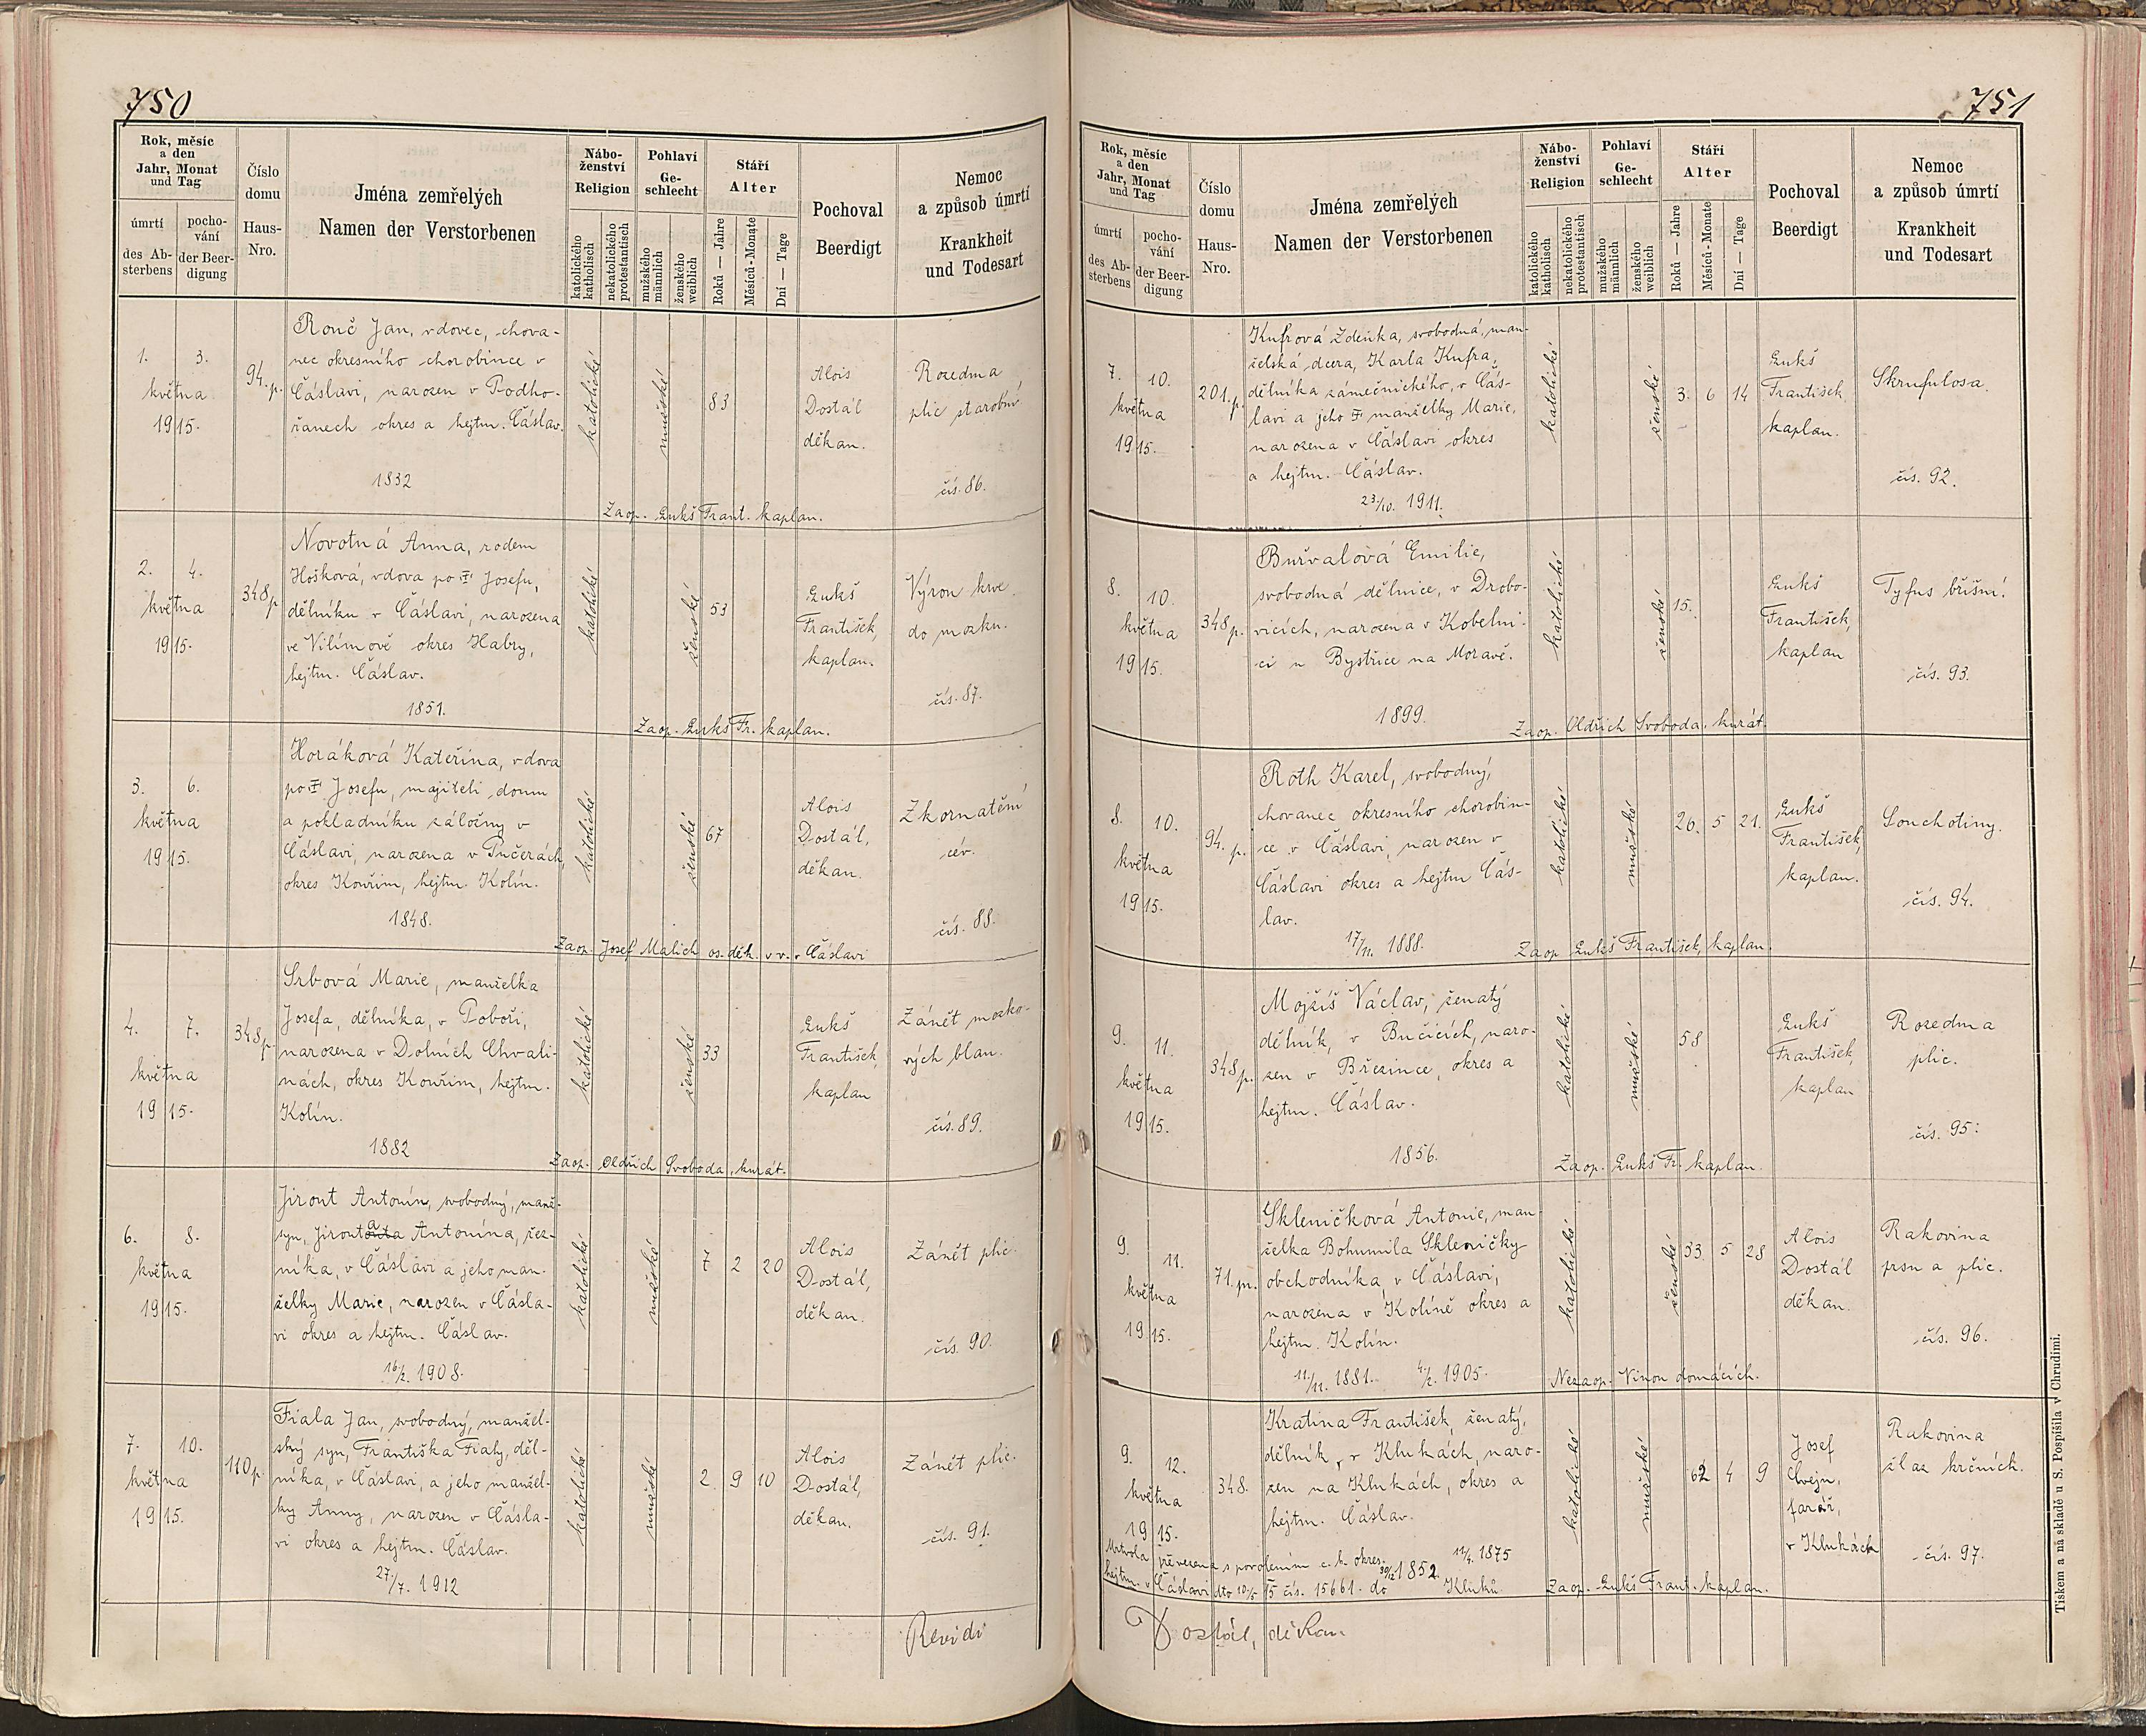 750
Rok, měsíc
a den
Jahr, Monat
und Tag
úmrtí
des Ab-
sterbens
pocho-
vání
der Beer-
digung
Číslo
domu
Haus-
Nro.
Jména zemřelých
Namen der Verstorbenen
Nábo-
ženství
Religion
katolického
katholisch
nekatolického
protestantisch
Pohlaví
Ge-
schlecht
mužského
männlich
ženského
weiblich
Stáří
Alter
Roků — Jahre
Měsíců - Monate
Dní — Tage
Pochoval
Beerdigt
Nemoc
a způsob úmrtí
Krankheit
und Todesart
1. 3.
května
1915.
94. p.
Ronč Jan, vdovec, chova-
nec okresního chorobince v
Čáslavi, narozen v Podho-
řanech okres a hejtm. Čáslav.
1832
katolické
mužské
83
Alois
Dostál
děkan.
Rozedma
plic starobní
čís. 86.
Zaop. Lukš Frant. kaplan.
2. 4.
května
1915.
348 p
Novotná Anna, rodem
Hošková, vdova po Josefu,
dělníku v Čáslavi, narozena
ve Vilímově okres Habry,
hejtm. Čáslav.
1851.
katolické
ženské
53
Lukš
František,
kaplan.
Výron krve
do mozku.
čís. 87.
Zaop. Lukš Fr. kaplan.
3. 6.
května
1915.
Horáková Kateřina, vdova
po Josefu, majiteli domu
a pokladníku záložny v
Čáslavi, narozena v Pučerách,
okres Kouřim, hejtm. Kolín.
1848.
katolické
ženské
67
Alois
Dostál,
děkan.
Zkornatění
cév.
čís. 88.
Zaop. Josef Malich os. děk. v v. v Čáslavi
4. 7.
května
1915.
348 p
Srbová Marie, manželka
Josefa, dělníka, v Poboři,
narozena v Dolních Chvali-
nách, okres Kouřim, hejtm.
Kolín.
1882
katolické
ženské
33
Lukš
František,
kaplan
Zánět mozko-
vých blan.
čís. 89.
Zaop. Oldřich Svoboda, kurát.
6. 8.
května
1915.
Jiront Antonín, svobodný, manž.
syn, Jironta Antonína, řez-
níka, v Čáslavi a jeho man-
želky Marie, narozen v Čásla-
vi okres a hejtm. Čáslav.
16/2. 1908.
katolické
mužské
7 2 20
Alois
Dostál,
děkan.
Zánět plic.
čís. 90.
7. 10.
května
1915.
110 p.
Fiala Jan, svobodný, manžel-
ský syn, Františka Fialy, děl-
níka, v Čáslavi, a jeho manžel-
ky Anny, narozen v Čásla-
vi okres a hejtm. Čáslav.
27/7. 1912
katolické
mužské
2 9 10
Alois
Dostál,
děkan.
Zánět plic.
čís. 91.
Revidi
751
Rok, měsíc
a den
Jahr, Monat
und Tag
úmrtí
des Ab-
sterbens
pocho-
vání
der Beer-
digung
Číslo
domu
Haus-
Nro.
Jména zemřelých
Namen der Verstorbenen
Nábo-
ženství
Religion
katolického
katholisch
nekatolického
protestantisch
Pohlaví
Ge-
schlecht
mužského
männlich
ženského
weiblich
Stáří
Alter
Roků — Jahre
Měsíců - Monate
Dní — Tage
Pochoval
Beerdigt
Nemoc
a způsob úmrtí
Krankheit
und Todesart
7. 10.
května
1915.
201. p.
Kufrová Zdeňka, svobodná, man-
želská dcera, Karla Kufra,
dělníka zámečnického, v Čás-
lavi a jeho manželky Marie,
narozena v Čáslavi okres
a hejtm. Čáslav.
23/10. 1911.
katolické
ženské
3. 6 14
Lukš
František,
kaplan.
Skrufulosa.
čís. 92.
8. 10.
května
1915.
348 p.
Buřvalová Emilie,
svobodná dělnice, v Drobo-
vicích, narozena v Kobelni-
ci u Bystřice na Moravě.
1899.
katolické
ženské
15.
Lukš
František,
kaplan
Tyfus břišní.
čís. 93.
Zaop. Oldřich Svoboda, kurát.
8. 10.
května
1915.
94. p.
Roth Karel, svobodný,
chovanec okresního chorobin-
ce v Čáslavi, narozen v
Čáslavi okres a hejtm Čás-
lav.
17/11. 1888.
katolické
mužské
26. 5 21.
Lukš
František,
kaplan.
Souchotiny.
čís. 94.
Zaop Lukš František, kaplan.
9. 11.
května
1915.
348 p.
Mojžíš Václav, ženatý
dělník, v Bučicích, naro-
zen v Březince, okres a
hejtm. Čáslav.
1856.
katolické
mužské
58
Lukš
František,
kaplan
Rozedma
plic.
čís. 95.
Zaop. Lukš Fr. kaplan.
9. 11.
května
1915.
71. m.
Skleničková Antonie, man-
želka Bohumila Skleničky
obchodníka, v Čáslavi,
narozena v Kolíně okres a
hejtm. Kolín.
11/11. 1881. 4/2. 1905.
katolické
ženské
33 5 28
Alois
Dostál
děkan.
Rakovina
prsu a plic.
čís. 96.
Nezaop. Vinou domácích.
9. 12.
května
1915.
348.
Kratina František, ženatý,
dělník, v Klukách, naro-
zen na Klukách, okres a
hejtm. Čáslav.
30/12 1852. 11/4. 1875
Mrtvola převezena s povolením c. k. okres.
hejtm. v Čáslavi dto 10/5 15 čís. 15661. do Kluků.
katolické
mužské
62 4 9
Josef
farář,
v Klukách
Rakovina
žlaz krčních.
čís. 97.
Zaop. Lukš Frant. kaplan.
Dostál, děkan
Tiskem a na skladě u S. Pospíšila v Chrudimi.